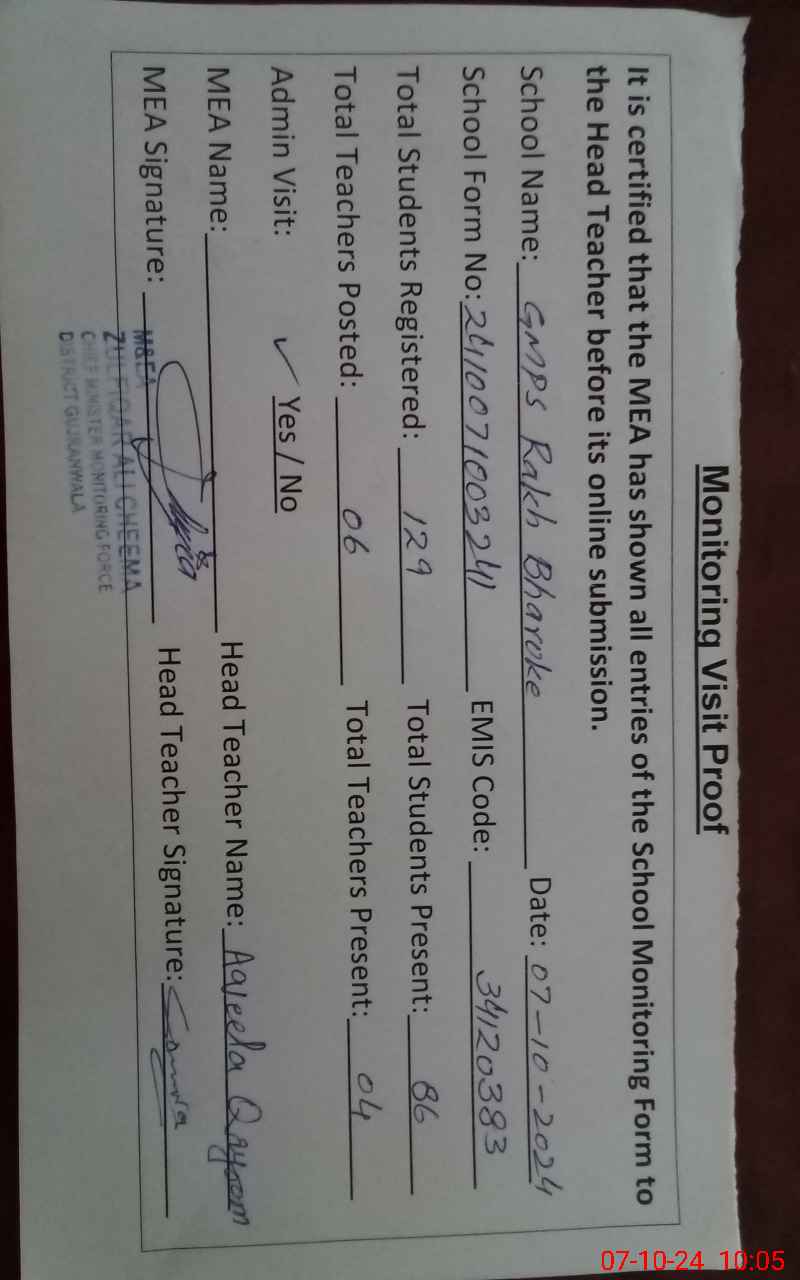 Monitoring Visit Proof
It is certified that the MEA has shown all entries of the School Monitoring Form to
the Head Teacher before its online submission.
School Name: GMPS Rakh Bharoke Date: 07-10-2024
School Form No: 24100710032411 EMIS Code: 34120383
Total Students Registered: 129 Total Students Present: 86
Total Teachers Posted: 06 Total Teachers Present: 04
Admin Visit: ✓ Yes / No
MEA Name: Head Teacher Name: Aqleela Qayoom
MEA Signature: Head Teacher Signature:
M&EA
ZULFIQAR ALI CHEEMA
CHIEF MINISTER MONITORING FORCE
DISTRICT GUJRANWALA
07-10-24 10:05